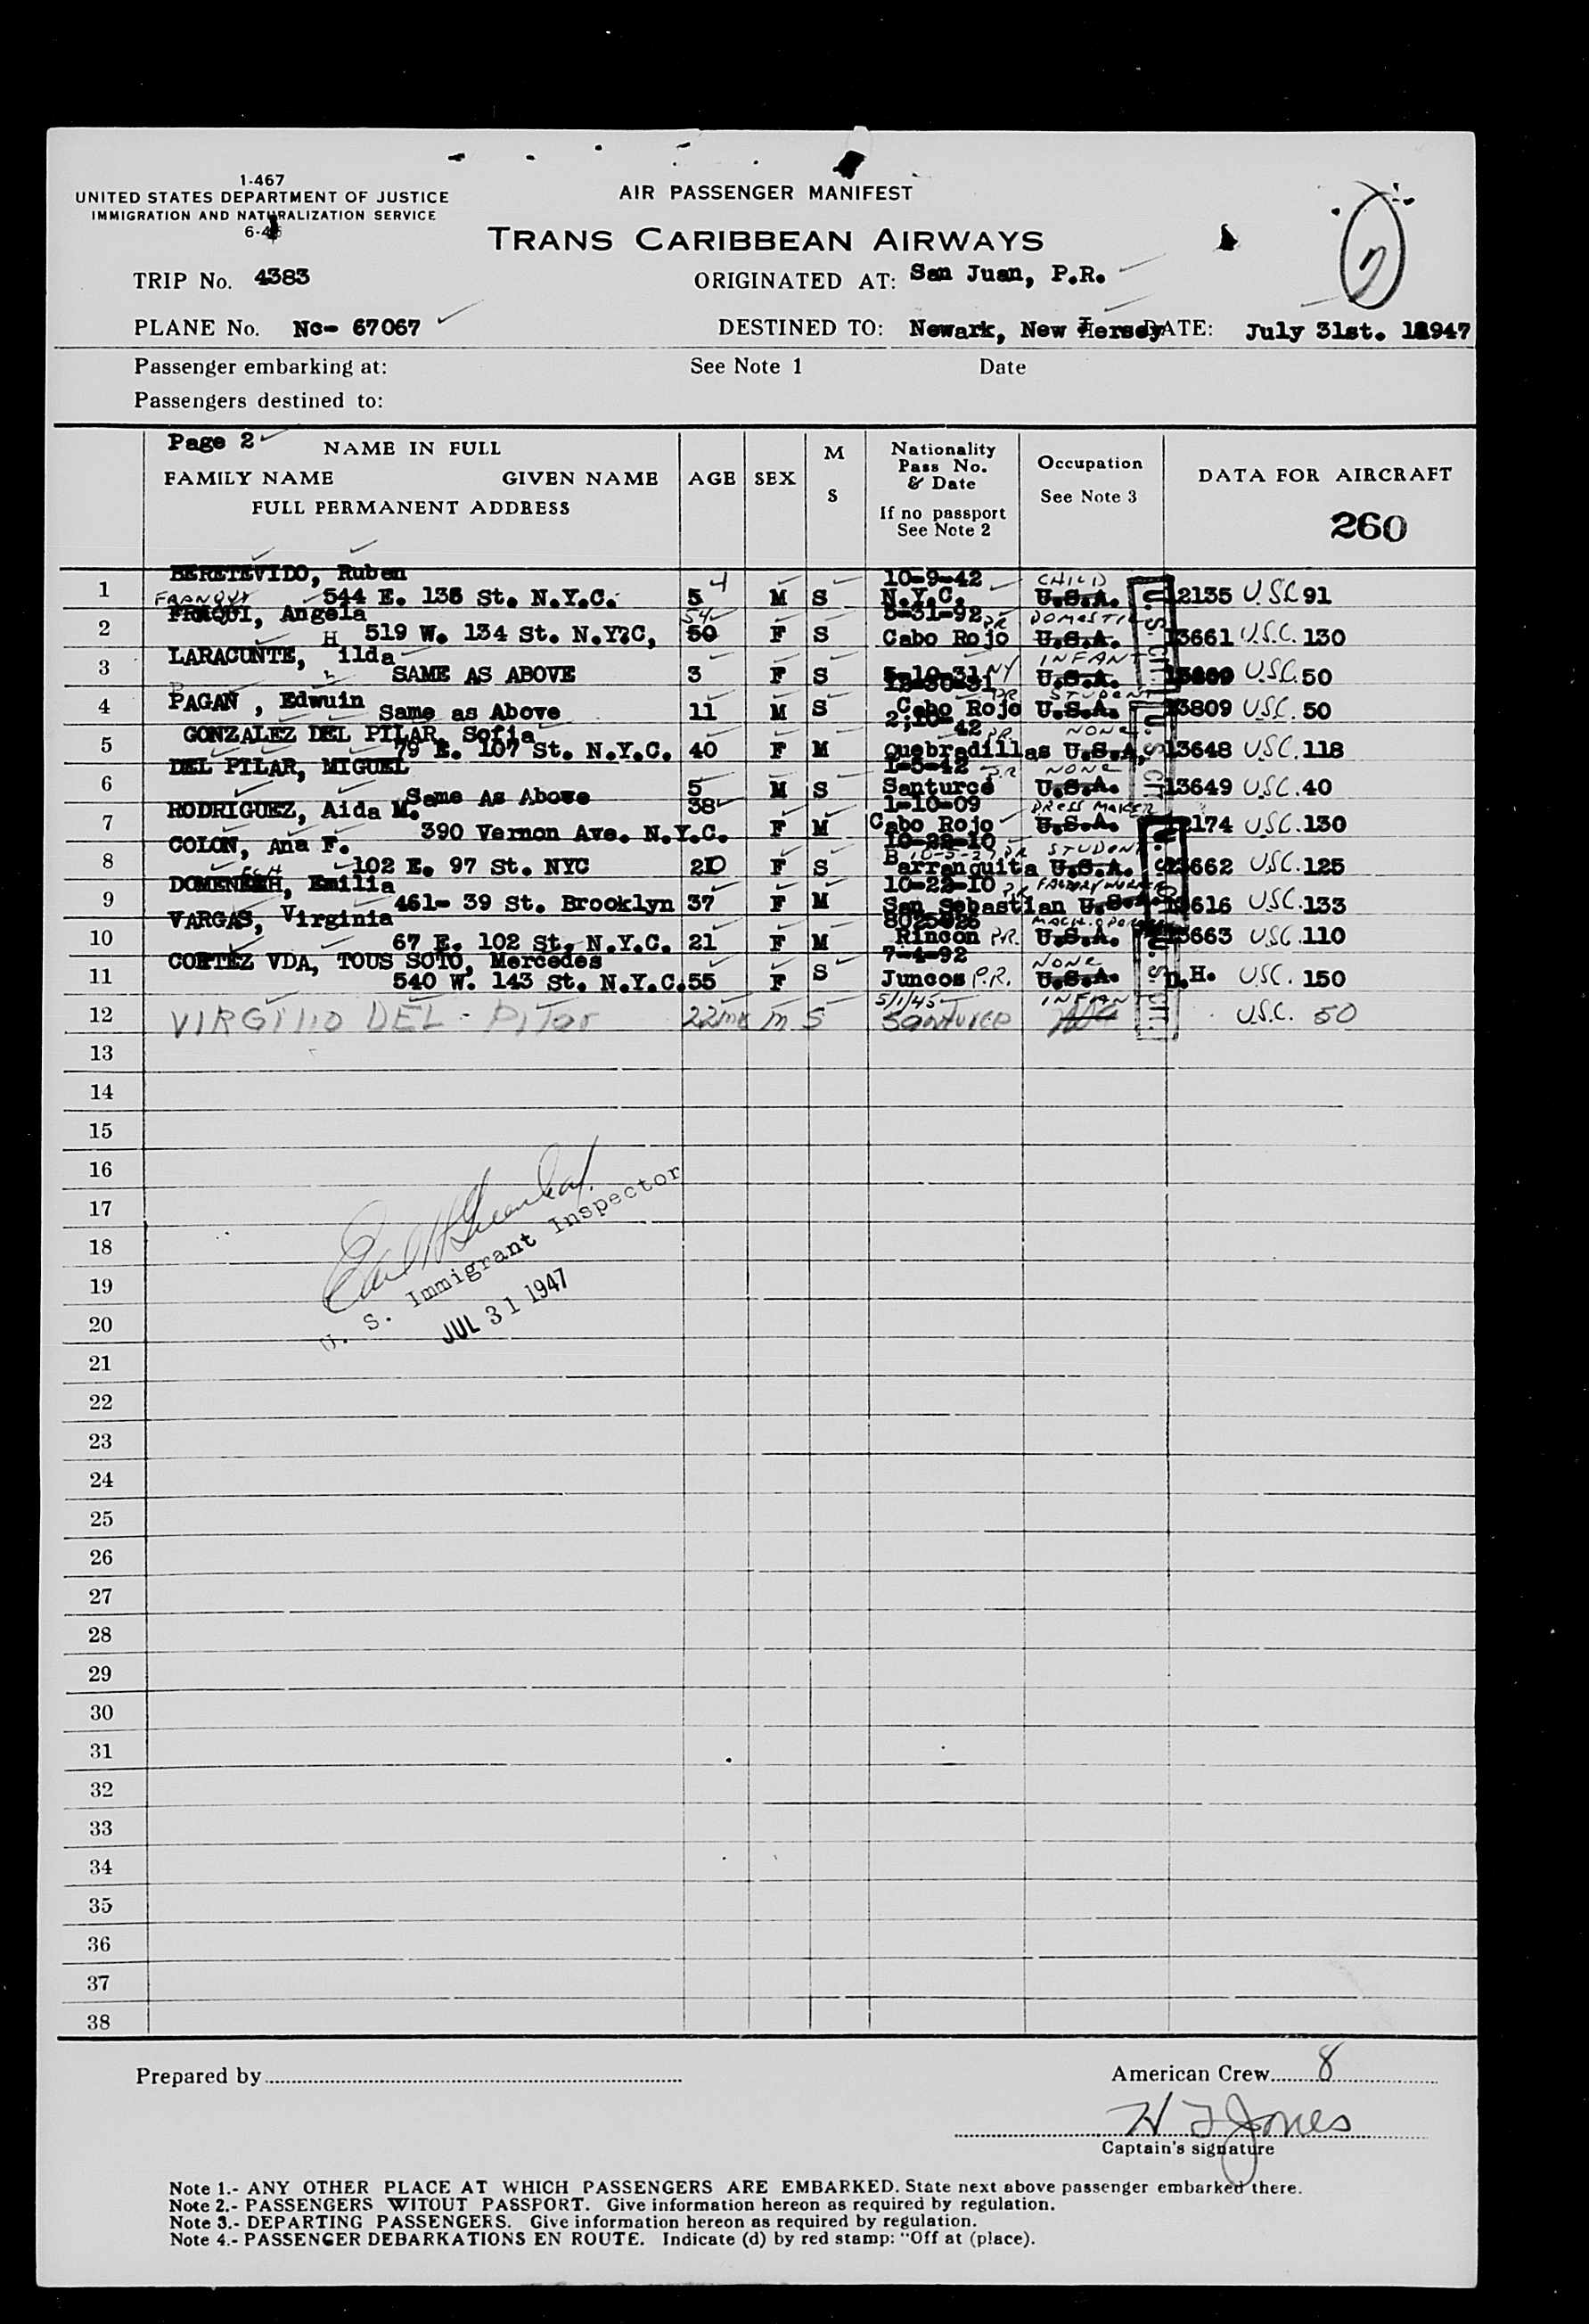 1-467
UNITED STATES DEPARTMENT OF JUSTICE
IMMIGRATION AND NATURALIZATION SERVICE
AIR PASSENGER MANIFEST
TRANS CARIBBEAN AIRWAYS
TRIP No. 4383
ORIGINATED AT: San Juan, P.R.
PLANE No. Nc- 67067
DESTINED TO: Newark, New Jersey DATE: July 31st. 1947
Passenger embarking at: See Note 1 Date
Passengers destined to:
Page 2 NAME IN FULL
FAMILY NAME GIVEN NAME
FULL PERMANENT ADDRESS
AGE SEX M S
Nationality
Pass No.
& Date
If no passport
See Note 2
Occupation
See Note 3
DATA FOR AIRCRAFT
260
BERETEVIDO, Ruben 10-9-42 CHILD
1 544 E. 136 St. N.Y.C. 5 4 M S N.Y.C. U.S.A. 12135 U.S.C. 91
FRANQUI
FRAQUI, Angela 54 5-31-92 PR DOMESTIC
2 519 W. 134 St. N.Y?C, 50 F S Cabo Rojo U.S.A. 13661 U.S.C. 130
LARACUNTE, Hilda INFANT
3 SAME AS ABOVE 3 F S NY U.S.A. U.S.C. 50
PAGAN , Edwuin PR STUDENT
4 Same as Above 11 M S Cabo Rojo U.S.A. 13809 U.S.C. 50
GONZALEZ DEL PILAR, Sofia 42 PR. NONE
5 79 E. 107 St. N.Y.C. 40 F M Quebradillas U.S.A, 13648 U.S.C. 118
DEL PILAR, MIGUEL 1-5-42 NONE
6 Same As Above 5 M S Santurce U.S.A. 13649 U.S.C. 40
RODRIGUEZ, Aida M. 38 1-10-09 DRESS MAKER
7 390 Vernon Ave. N.Y.C. F M Cabo Rojo U.S.A. 174 U.S.C. 130
COLON, Ana F. 10-22-10 10-5-27 PR STUDENT
8 102 E. 97 St. NYC 20 F S Barranquita U.S.A. 13662 U.S.C. 125
DOMENECH, Emilia 10-22-10 P.R. FACTORY WORKER
9 461- 39 St. Brooklyn 37 F M San Sebastian U.S.A. 616 U.S.C. 133
VARGAS, Virginia
10 67 E. 102 St. N.Y.C. 21 F M Rincon P.R. U.S.A. 13663 U.S.C. 110
CORTEZ VDA, TOUS SOTO, Mercedes 7-4-92 NONE
11 540 W. 143 St. N.Y.C. 55 F S Juncos P.R. U.S.A. D.H. U.S.C. 150
5/1/45 INFANT
12 VIRGILIO DEL - PILar 22mo m S Santurce U.S.C. 50
13
14
15
16
17
18
19
20
21
22
23
24
25
26
27
28
29
30
31
32
33
34
35
36
37
38
U. S. Immigrant Inspector
JUL 31 1947
Prepared by
American Crew 8
H T Jones
Captain's signature
Note 1.- ANY OTHER PLACE AT WHICH PASSENGERS ARE EMBARKED. State next above passenger embarked there.
Note 2.- PASSENGERS WITOUT PASSPORT. Give information hereon as required by regulation.
Note 3.- DEPARTING PASSENGERS. Give information hereon as required by regulation.
Note 4.- PASSENGER DEBARKATIONS EN ROUTE. Indicate (d) by red stamp: "Off at (place).